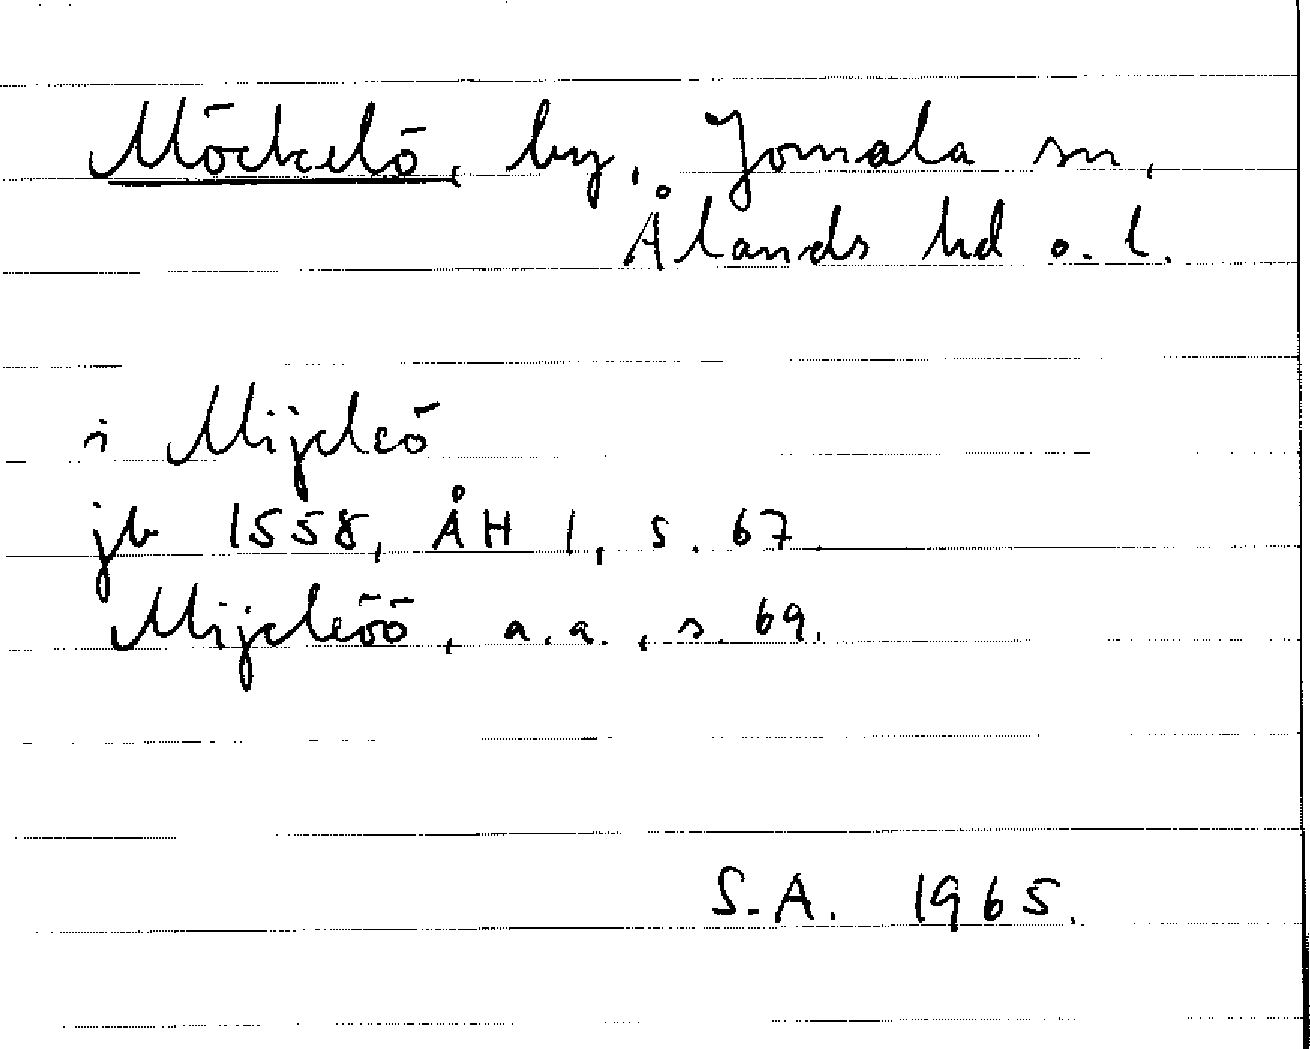 Möckelö, by, Jomala sn,
Ålands hd o. l.
i Mijcleö
jb 1558, ÅH 1, s. 67.
Mijcleöö, a.a., s. 69.
S.A. 1965.